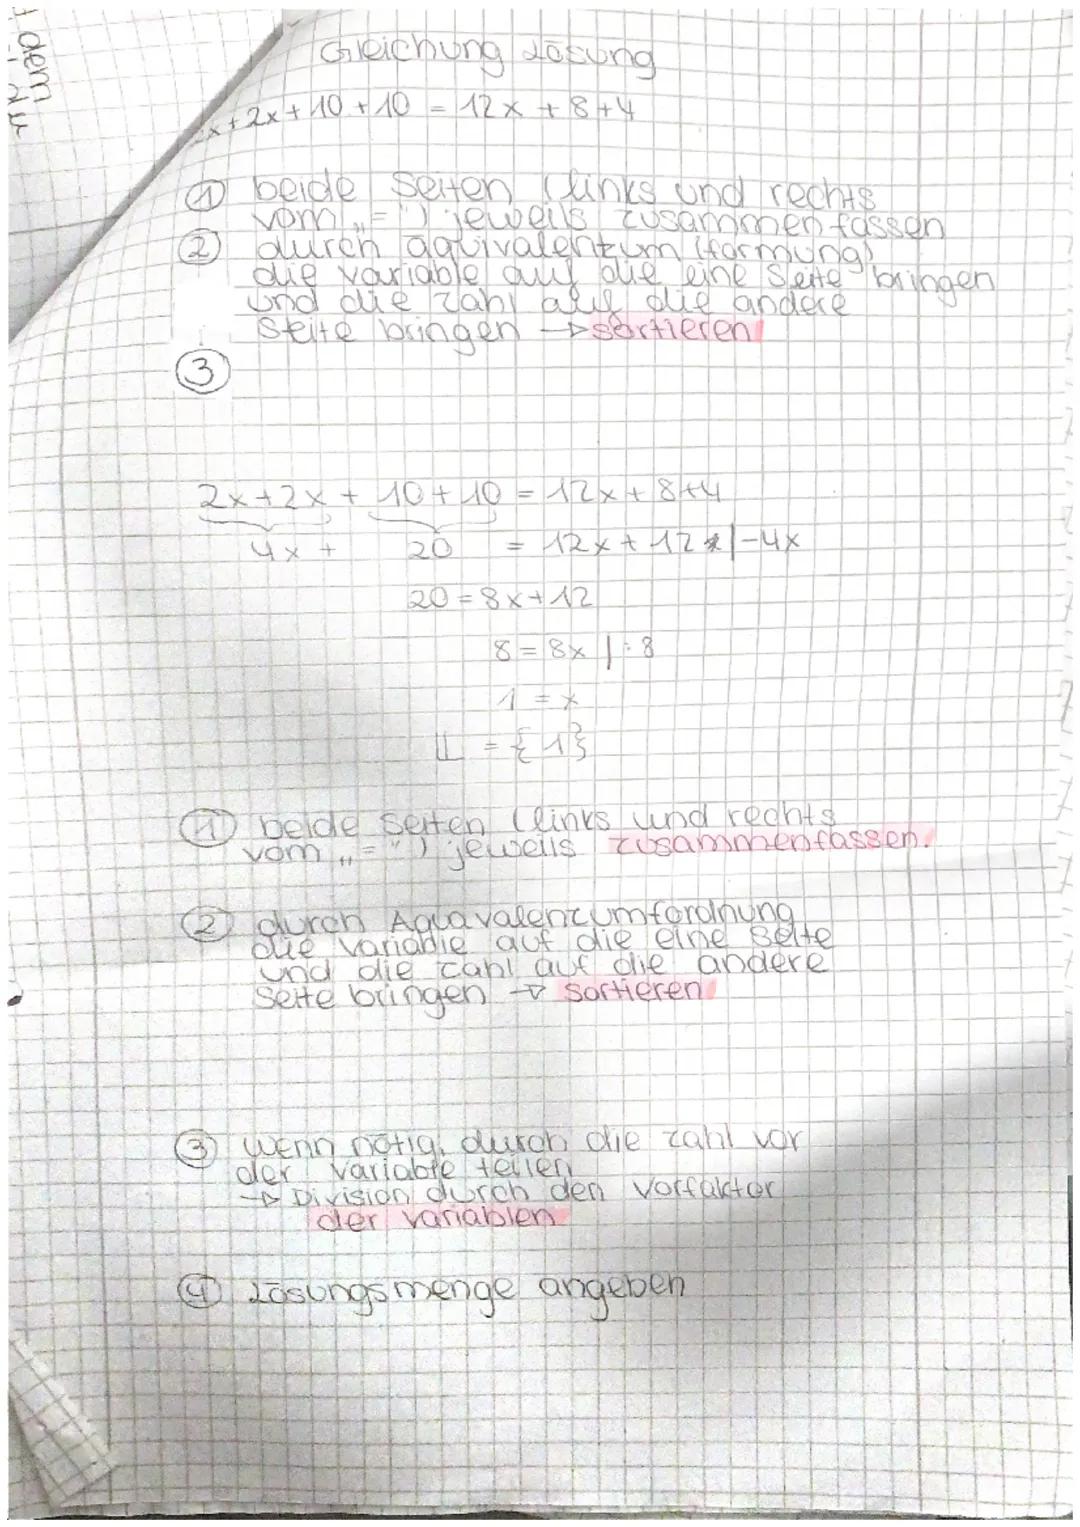 dem
Gleichung Lösung
x+2x+10+10 = 12x +8+4
① beide Seiten (links und rechts
vom „=") jeweils zusammenfassen
② durch äquivalenzum(formung)
die variable auf die eine Seite bringen
und die zahl auf die andere
Seite bringen → sortieren
③
2x+2x + 10+10 = 12x+8+4
4x + 20 = 12x+12 |-4x
20=8x+12
8=8x |:8
1 = x
𝕃 = {1}
① beide Seiten (links und rechts
vom „=") jeweils zusammenfassen.
② durch Äquavalenzumfordnung
die variable auf die eine Seite
und die zahl auf die andere
Seite bringen → sortieren
③ wenn nötig, durch die zahl vor
der variable teilen
→ Division durch den Vorfaktor
der variablen
④ Lösungsmenge angeben